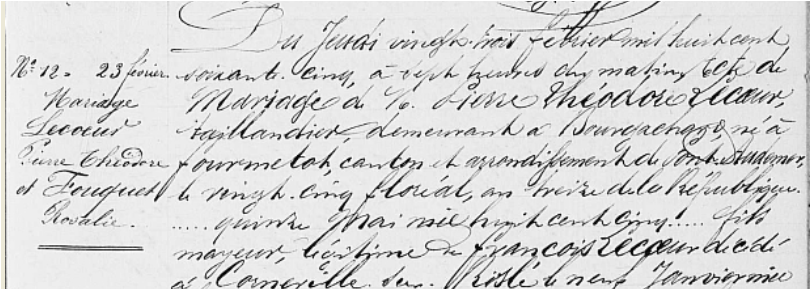 Nº 12. 23 février.
Mariage
Lecoeur
Pierre Théodore
et Fouquet
Rosalie.
Du Jeudi vingt-trois février mil huit cent
soixante-cinq, à sept heures du matin, Acte de
Mariage de M. Pierre Théodore Lecoeur,
taillandier, demeurant à Bourgachard, né à
fourmetot, canton et arrondissement de Pont-Audemer,
le vingt-cinq floréal, an treize de la République
..... quinze Mai mil huit cent cinq ..... fils
mayeur, légitime de françois Lecoeur décédé
à Corneville-sur-Risle le neuf Janvier mil